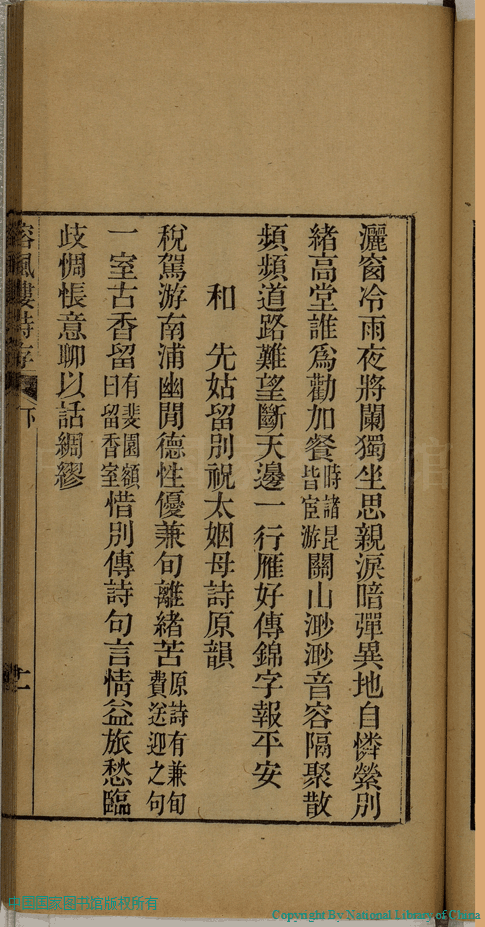 灑窗冷雨夜將闌獨坐思親淚暗彈異地自憐縈別
緒高堂誰爲勸加餐時諸昆皆宦游關山渺渺音容隔聚散
頻頻道路難望斷天邊一行雁好傳錦字報平安
和　先姑留別祝太姻母詩原韻
稅駕游南浦幽閒德性優兼旬離緒苦原詩有兼旬費送迎之句
一室古香留有斐園額曰留香室惜別傳詩句言情益旅愁臨
歧惆悵意聊以話綢繆
樓詩存
下
中国国家图书馆版权所有
Copyright By National Library of China